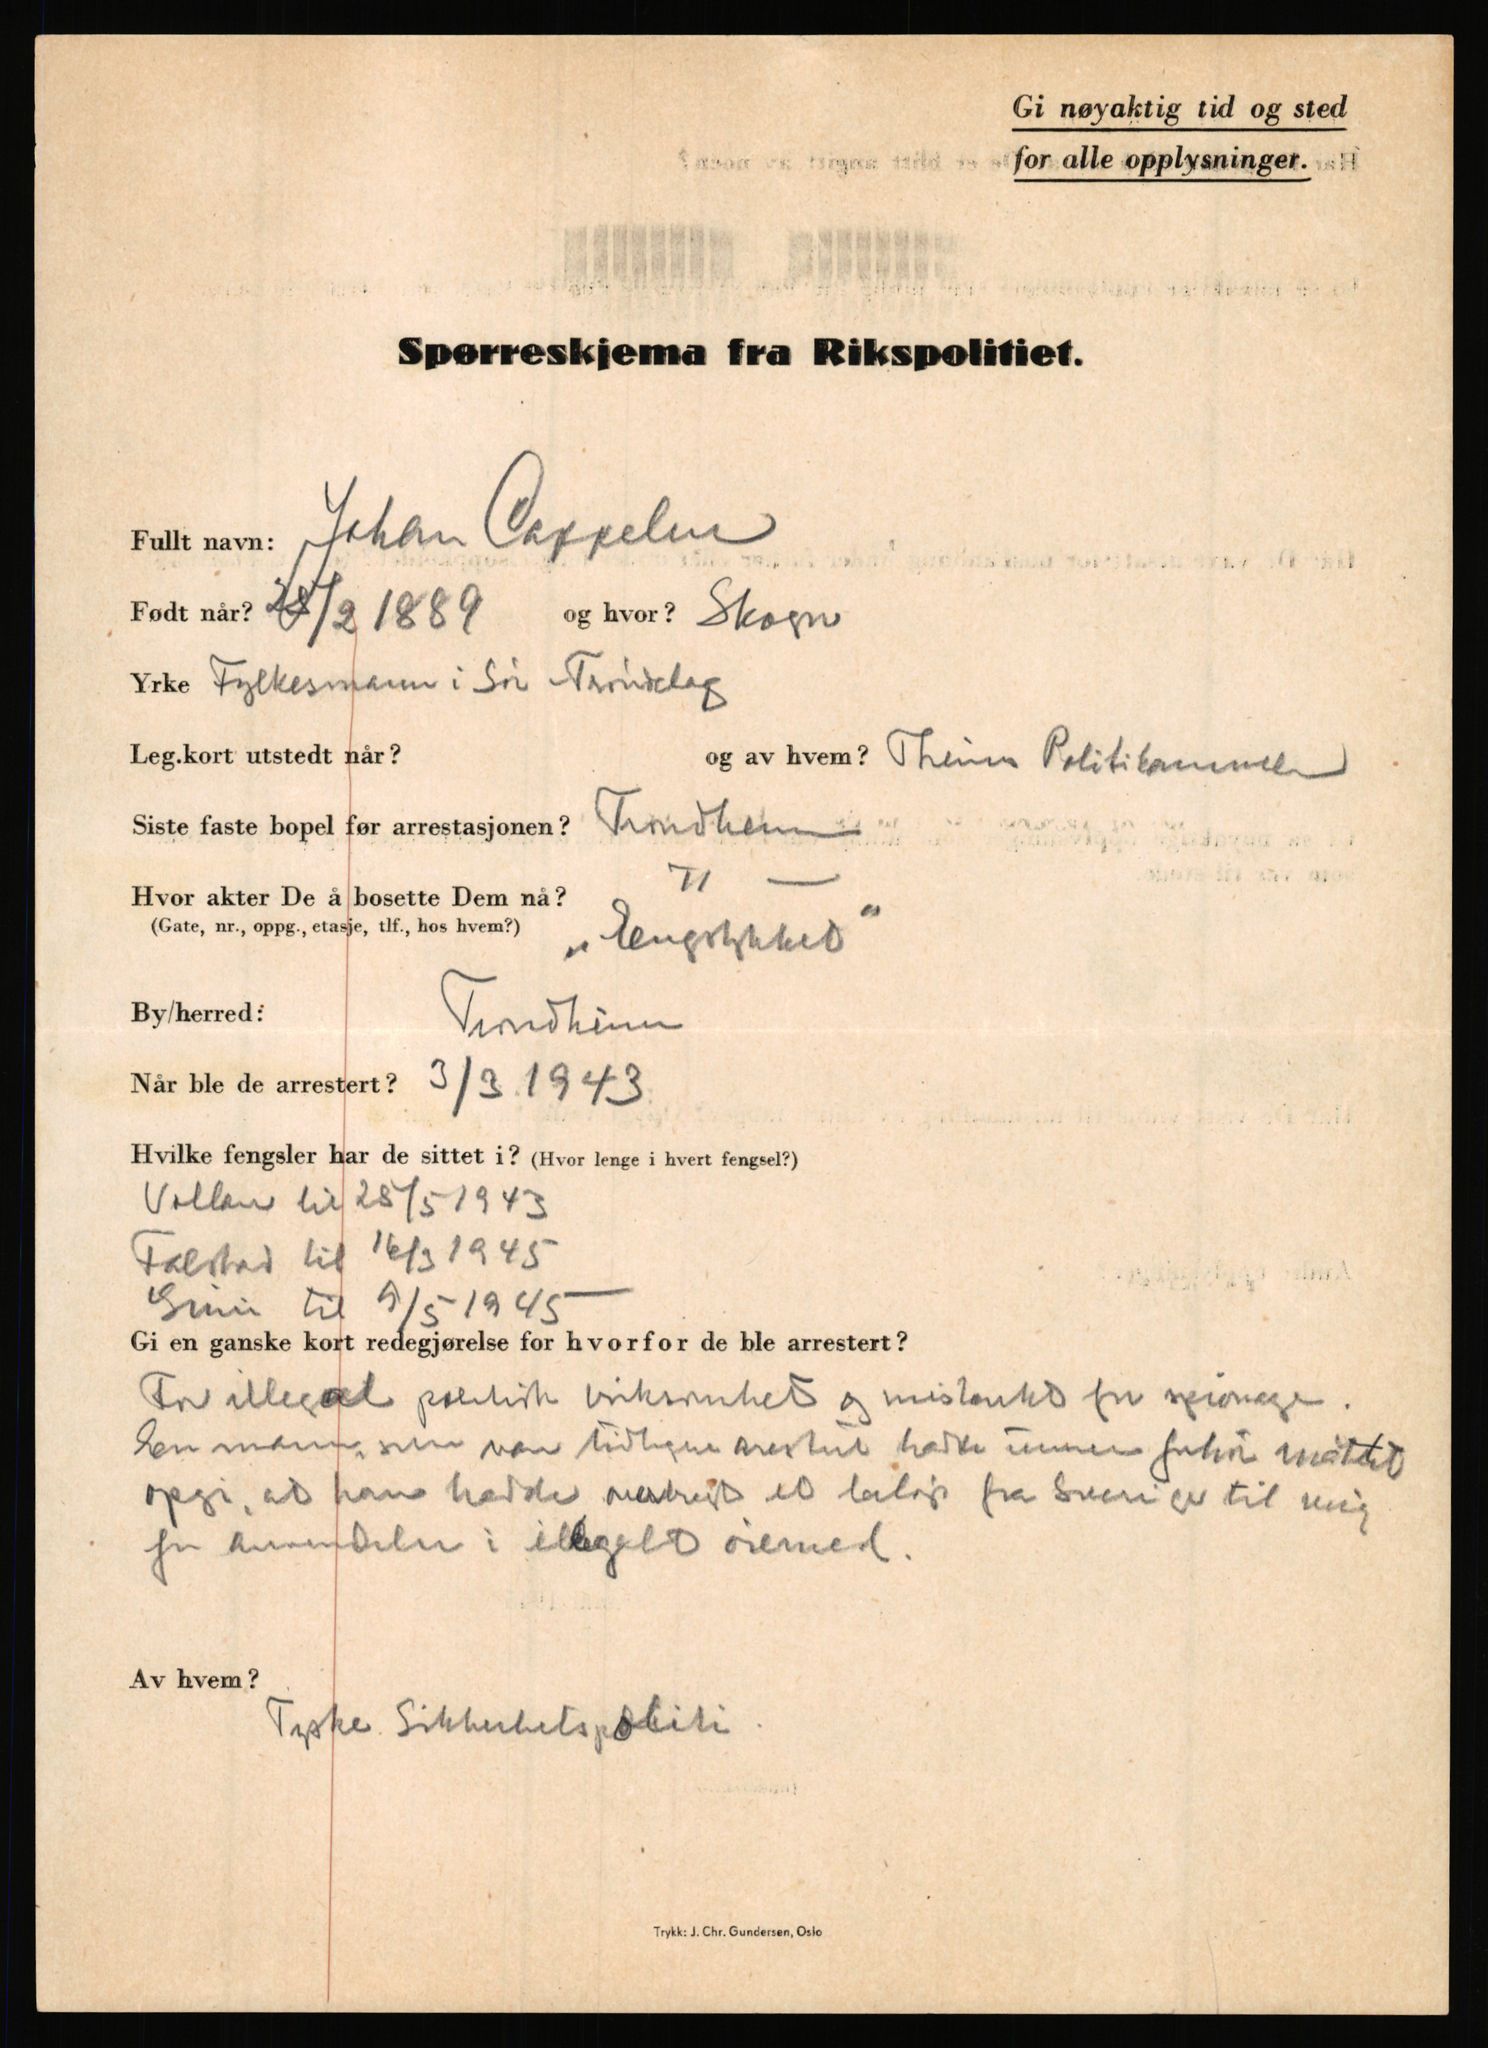 Gi nøyaktig tid og sted
for alle opplysninger.
Spørreskjema fra Rikspolitiet.
Fullt navn: Johan Cappelen
Født når? 28/2 1889 og hvor? Skogn
Yrke Fylkesmann i Sør Trøndelag
Leg.kort utstedt når? og av hvem? Theims Politikammer
Siste faste bopel før arrestasjonen? Trondheim
Hvor akter De å bosette Dem nå? — " —
(Gate, nr., oppg., etasje, tlf., hos hvem?) „Engstykket"
By/herred: Trondheim
Når ble de arrestert? 3/3 1943
Hvilke fengsler har de sittet i? (Hvor lenge i hvert fengsel?)
Vollan til 28/5 1943
Falstad til 16/3 1945
Grini til 9/5 1945
Gi en ganske kort redegjørelse for hvorfor de ble arrestert?
For illegal politisk virksomhet og mistenkt for spionage.
En mann, som var tidligere arrestert hadde under forhør måttet
opgi, at han hadde overbragt et beløp fra Sverige til mig
for anvendelse i illegalt øiemed.
Av hvem?
Tyske Sikkerhetspoliti.
Trykk: J. Chr. Gundersen, Oslo